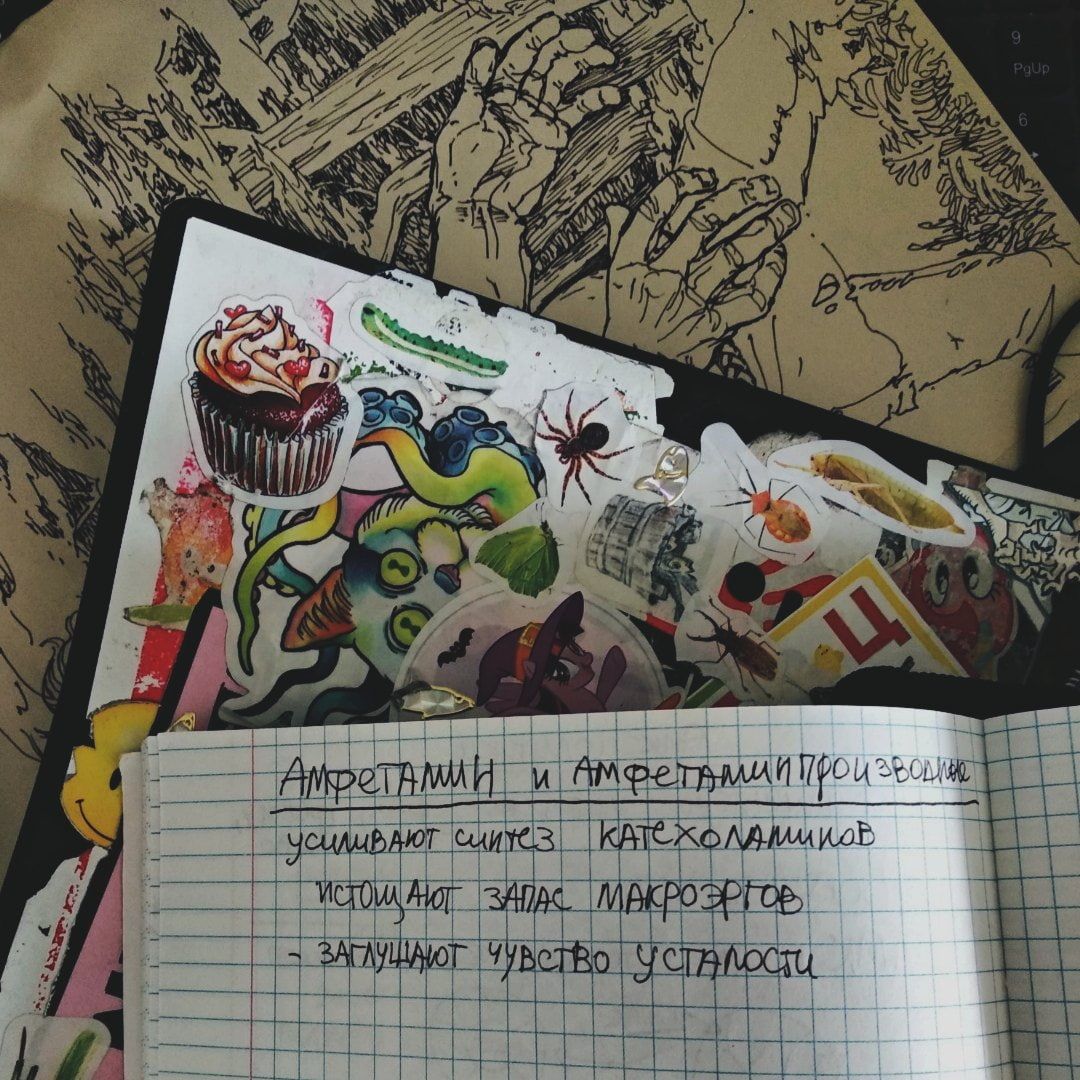 9
PgUp
6
Ц
Амфетамин и Амфетаминпроизводные
усиливают синтез катехоламинов
истощают запас макроэргов
- заглушают чувство усталости